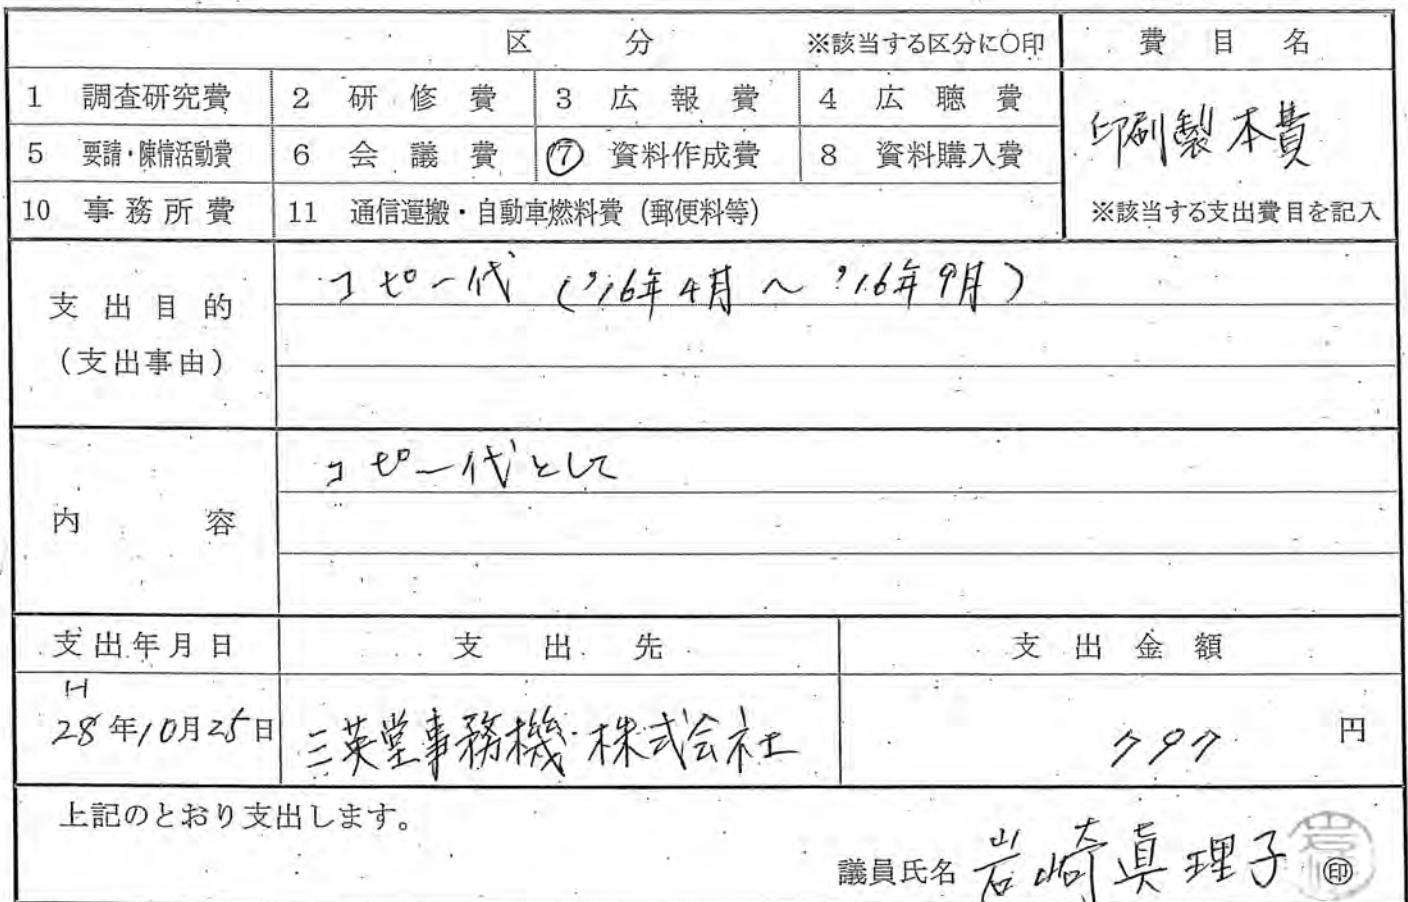 区分 ※該当する区分に○印 費目名
1 調査研究費 2 研修費 3 広報費 4 広聴費
印刷製本費
5 要請・陳情活動費 6 会議費 ⑦ 資料作成費 8 資料購入費
10 事務所費 11 通信運搬・自動車燃料費(郵便料等) ※該当する支出費目を記入
コピー代 ('16年4月〜'16年9月)
支出目的
(支出事由)
コピー代として
内容
支出年月日 支出先 支出金額
H
28年10月25日 三英堂事務機株式会社 797 円
上記のとおり支出します。
議員氏名 岩崎真理子 ㊞